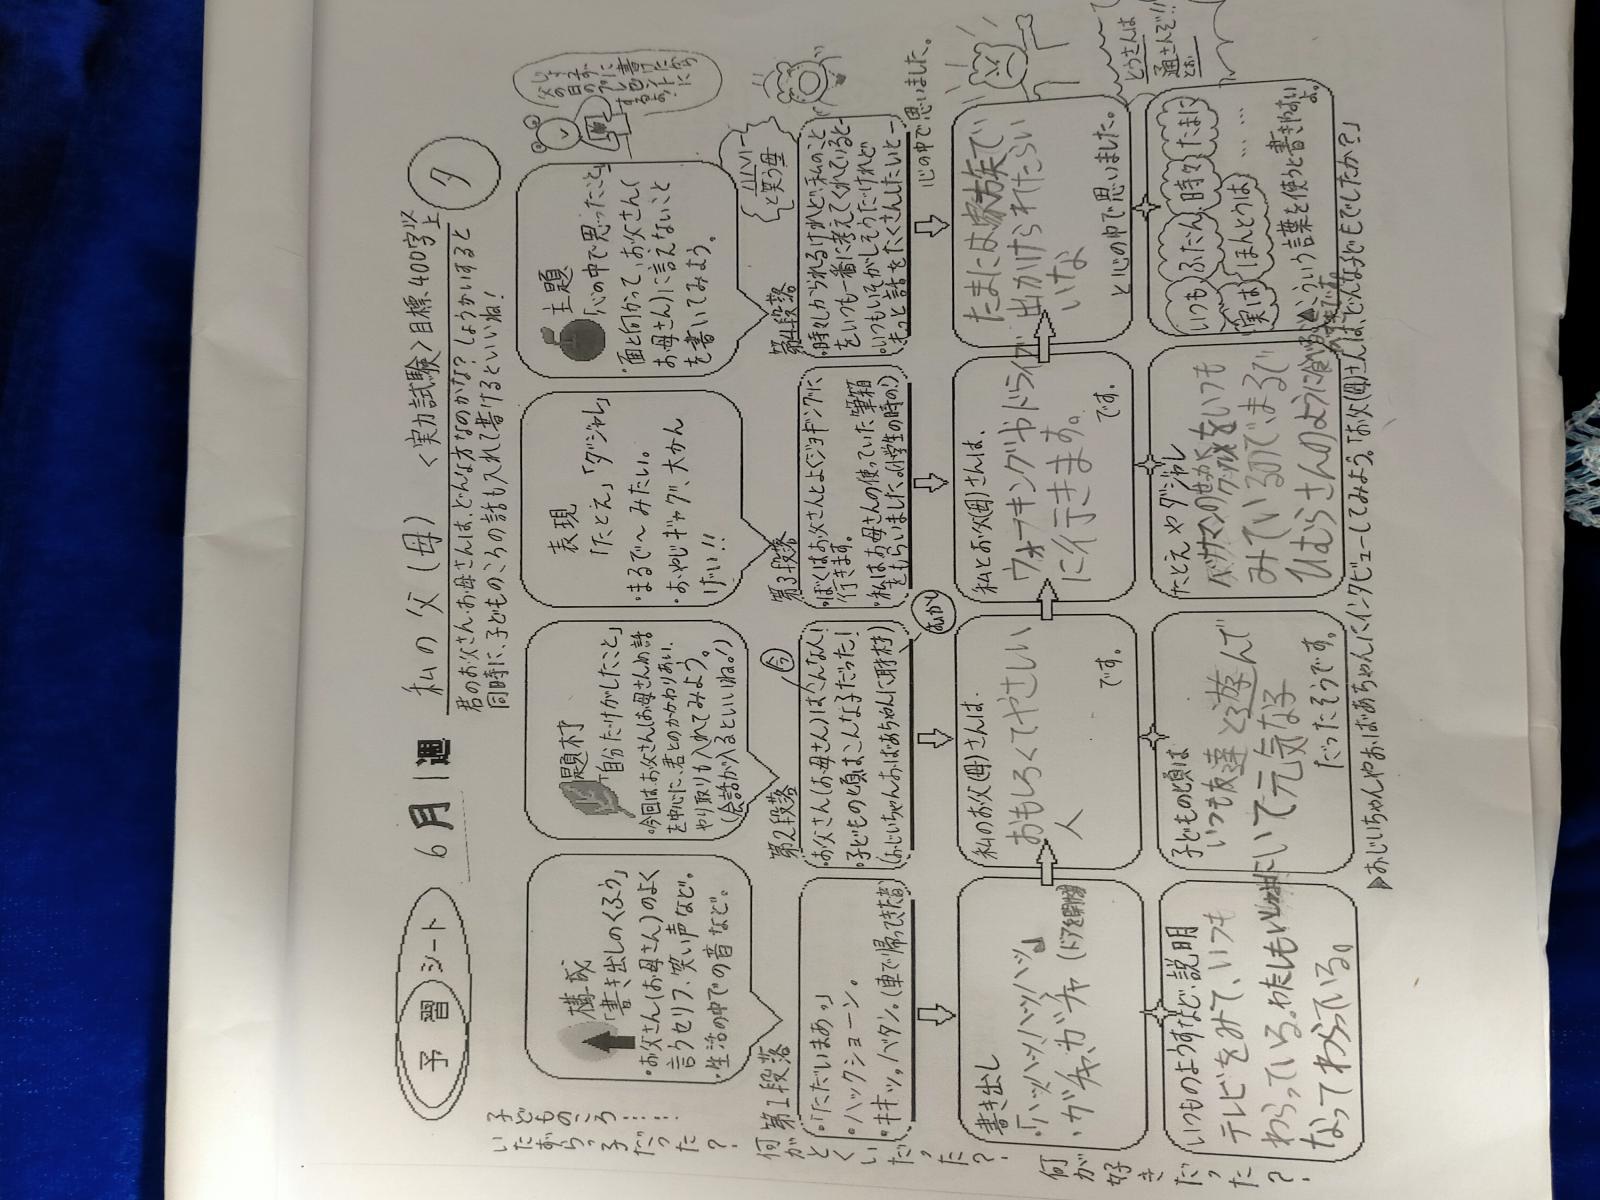 予習シート
6月1週
私の父(母)
〈実力試験〉目標400字以上
タ
君のお父さん・お母さんは、どんな方なのかな?しょうかいすると
同時に、子どものころの話も入れて書けるといいね!
子どものころ……
いたずらっ子だった?
何がとくいだった?
何が好きだった?
構成
「書き出しのくふう」
・お父さん(お母さん)のよく
言うセリフ、笑い声など。
・生活の中での音など。
題材
「自分だけがしたこと」
・今回は、お父さん(お母さん)の話
を中心に、君とのかかわりあい、
やり取りも入れてみよう。
(会話が入るといいね。)
表現
「たとえ」「ダジャレ」
・まるで〜みたい。
・おやじギャグ、大かん
げい!!
主題
「心の中で思ったこと」
・面と向かって、お父さん(
お母さん)に言えないこと
を書いてみよう。
第1段落
・「ただいまあっ」
・ハックショーン。
・キキッ。バタン。(車で帰ってきた音)
第2段落
今
・お父さん(お母さん)はこんな人!
・子どもの頃はこんな子だった!
(おじいちゃんおばあちゃんに取材)
むかし
第3段落
・ぼくはお父さんとよくジョギングに
行きます。
・私はお母さんの使っていた筆箱
をもらいました。(小学生の時の!)
第4段落
・時々しかられるけれど、私のこと
をいつも一番に考えてくれていると―
・いつもいそがしそうだけれど
もっと話をたくさんしたいと―
心の中で思いました。
と笑う母
書き出し
・「ハッハッハッハッハッ」
・ガチャ、ガチャ
私のお父(母)さんは、
おもしろくてやさしい
人
です。
私とお父(母)さんは、
ウォーキングやドライブ
に行きます。
です。
たまには家族で
出かけられたらい
いな
と心の中で思いました。
いつものようすなど、説明
テレビをみて、いつも
わらっている。わたしもい
なってわらっている。
子どもの頃は
いつも友達と遊んで
いて元気な子
だったそうです。
たとえやダジャレ
いつも
みているのでまるで
ひむらさんのように
いつも ふだん 時々 たまに
実は ほんとうは ……
▲こういう言葉を使うと書きやすいよ。
とうさんは
通さんぞ!!
▶おじいちゃんやおばあちゃんにインタビューしてみよう。「お父(母)さんは、どんな子どもでしたか?」